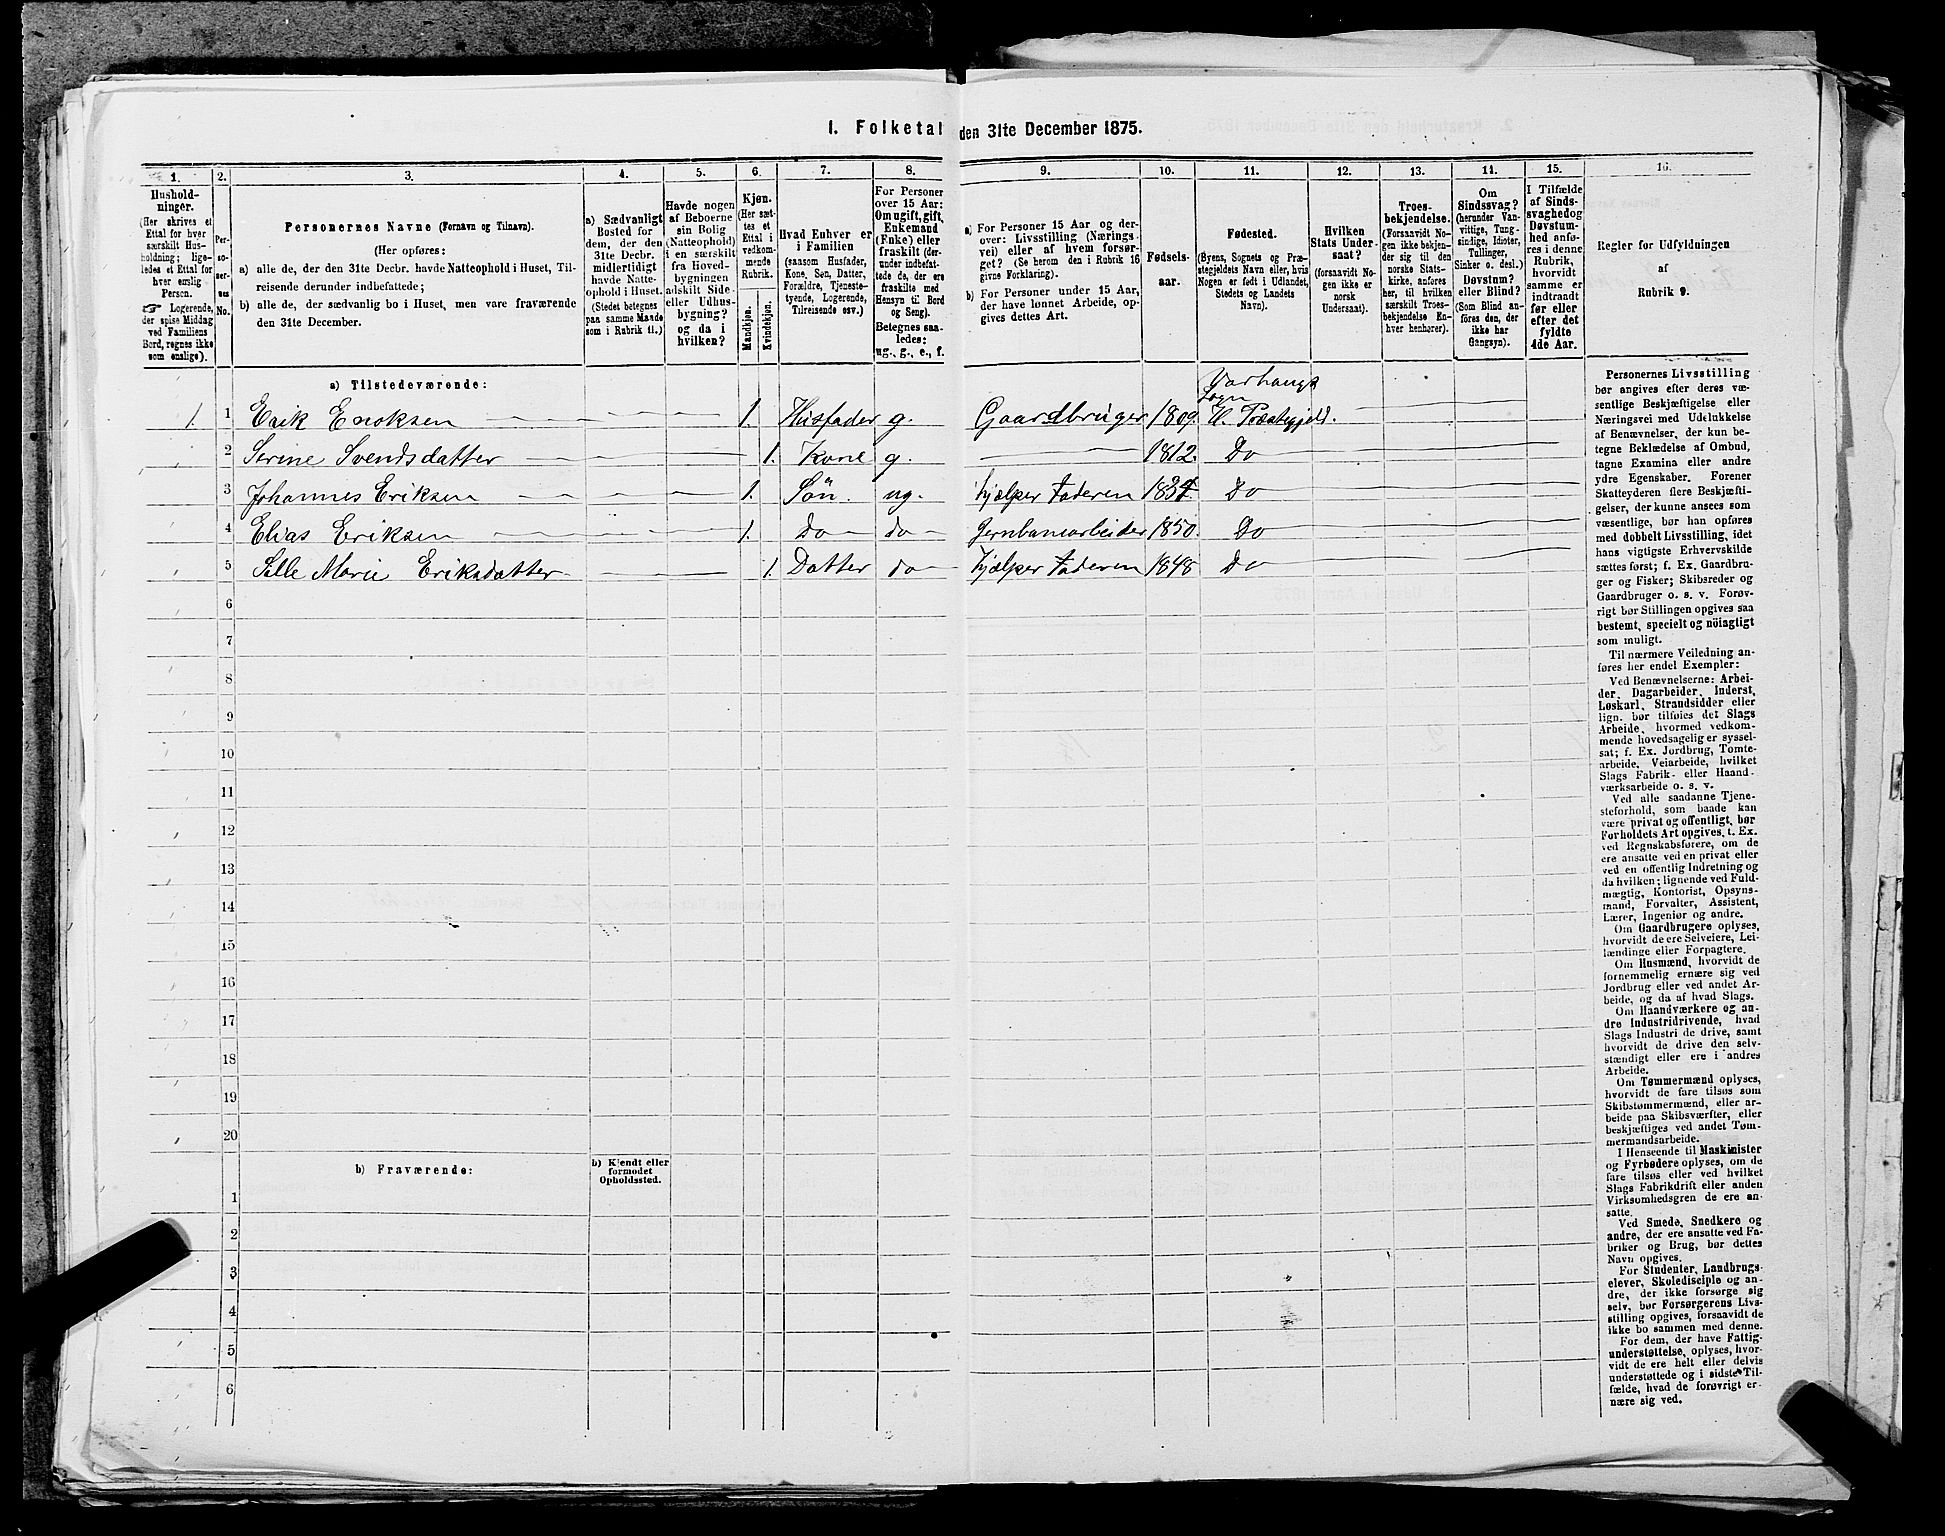 1. Folketal den 31te December 1875.
1.
Hushold-
ninger.
(Her skrives et
Ettal for hver
særskilt Hus-
holdning; lige-
ledes et Ettal for
hver enslig
Person.
☞ Logerende,
der spise Middag
ved Familiens
Bord, regnes ikke
som enslige).
2.
Per-
so-
ner-
nes
No.
3.
Personernes Navne (Fornavn og Tilnavn).
(Her opføres:
a) alle de, der den 31te Decbr. havde Natteophold i Huset, Til-
reisende derunder indbefattede;
b) alle de, der sædvanlig bo i Huset, men vare fraværende
den 31te December.
4.
a) Sædvanligt
Bosted for
dem, der den
31te Decbr.
midlertidigt
havde Natte-
ophold i Huset.
(Stedet betegnes
paa samme Maade
som i Rubrik 11.)
5.
Havde nogen
af Beboerne
sin Bolig
(Natteophold)
i en særskilt
fra Hoved-
bygningen
adskilt Side-
eller Udhus-
bygning?
og da i
hvilken?
6.
Kjøn.
(Her sæt-
tes et
Ettal i
vedkom-
mende
Rubrik.
Mandkjøn.
Kvindekjøn.
7.
Hvad Enhver er
i Familien
(saasom Husfader,
Kone, Søn, Datter,
Forældre, Tjeneste-
tyende, Logerende,
Tilreisende osv.)
8.
For Personer
over 15 Aar:
Om ugift, gift,
Enkemand
(Enke) eller
fraskilt (der-
under indbefat-
tede de, der ere
fraskilte med
Hensyn til Bord
og Seng).
Betegnes saa-
ledes:
ug., g., e., f.
9.
a) For Personer 15 Aar og der-
over: Livsstilling (Nærings-
vei) eller af hvem forsør-
get? (Se herom den i Rubrik 16
givne Forklaring).
b) For Personer under 15 Aar,
der have lønnet Arbeide, op-
gives dettes Art.
10.
Fødsels-
aar.
11.
Fødested.
(Byens, Sognets og Præ-
stegjeldets Navn eller, hvis
Nogen er født i Udlandet,
Stedets og Landets
Navn).
12.
Hvilken
Stats Under-
saat?
(forsaavidt No-
gen ikke er
norsk
Undersaat).
13.
Troes-
bekjendelse.
(Forsaavidt No-
gen ikke bekjen-
der sig til den
norske Stats-
kirke, anføres
her, til hvilken
særskilt Troes-
bekjendelse En-
hver henhører).
14.
Om
Sindssvag?
(herunder Van-
vittige, Tung-
sindige, Idioter,
Tullinger,
Sinker o. desl.)
Døvstum?
eller Blind?
(Som Blind an-
føres den, der
ikke har
Gangsyn).
15.
I Tilfælde
af Sinds-
svaghed og
Døvstum-
hed anfø-
res i denne
Rubrik,
hvorvidt
samme er
indtraadt
før eller
efter det
fyldte
4de Aar.
16.
Regler for Udfyldningen
af
Rubrik 9.
a) Tilstedeværende:
Varhaugs
Sogn
1. 1 Erik Enoksen 1. Husfader g. Gaardbruger 1809. H. Præstegjeld.
2 Serine Svendsdatter 1. Kone g. 1812. Do
3 Johannes Eriksen 1. Søn. ug. hjælper Faderen Do
4 Elias Eriksen 1. Do do Jernbanearbeider 1850. Do
5 Sille Marie Eriksdatter 1. Datter do hjælper Faderen 1848 Do
6
7
8
9
10
11
12
13
14
15
16
17
18
19
20
b) Fraværende:
b) Kjendt eller
formodet
Opholdssted.
1
2
3
4
5
6
Personernes Livsstilling
bør angives efter deres væ-
sentlige Beskjæftigelse eller
Næringsvei med Udelukkelse
af Benævnelser, der kun be-
tegne Beklædelse af Ombud,
tagne Examina eller andre
ydre Egenskaber. Forener
Skatteyderen flere Beskjæfti-
gelser, der kunne ansees som
væsentlige, bør han opføres
med dobbelt Livsstilling, idet
hans vigtigste Erhvervskilde
sættes først; f. Ex. Gaardbru-
ger og Fisker; Skibsreder og
Gaardbruger o. s. v. Forøv-
rigt bør Stillingen opgives saa
bestemt, specielt og nöiagtigt
som muligt.
Til nærmere Veiledning an-
føres her endel Exempler:
Ved Benævnelserne: Arbei-
der, Dagarbeider, Inderst,
Løskarl, Strandsidder eller
lign. bør tilføies det Slags
Arbeide, hvormed vedkom-
mende hovedsagelig er syssel-
sat; f. Ex. Jordbrug, Tomte-
arbeide, Veiarbeide, hvilket
Slags Fabrik- eller Haand-
værksarbeide o. s. v.
Ved alle saadanne Tjene-
steforhold, som baade kan
være privat og offentligt, bør
Forholdets Art opgives, t. Ex.
ved Regnskabsførere, om de
ere ansatte ved en privat eller
ved en offentlig Indretning og
da hvilken; lignende ved Fuld-
mægtig, Kontorist, Opsyns-
mand, Forvalter, Assistent,
Lærer, Ingeniør og andre.
Om Gaardbrugere oplyses,
hvorvidt de ere Selveiere, Lei-
lændinge eller Forpagtere.
Om Husmænd, hvorvidt de
fornemmelig ernære sig ved
Jordbrug eller ved andet Ar-
beide, og da af hvad Slags.
Om Haandværkere og an-
dre Industridrivende, hvad
Slags Industri de drive, samt
hvorvidt de drive den selv-
stændigt eller ere i andres
Arbeide.
Om Tømmermænd oplyses,
hvorvidt de fare tilsøs som
Skibstømmermænd, eller ar-
beide paa Skibsværfter, eller
beskjæftiges ved andet Tøm-
mermandsarbeide.
I Henseende til Maskinister
og Fyrbødere oplyses, om de
fare tilsøs eller ved hvilket
Slags Fabrikdrift eller anden
Virksomhedsgren de ere an-
satte.
Ved Smede, Snedkere og
andre, der ere ansatte ved Fa-
briker og Brug, bør dettes
Navn opgives.
For Studenter, Landbrugs-
elever, Skoledisciple og an-
dre, der ikke forsørge sig
selv, bør Forsørgerens Livs-
stilling opgives, forsaavidt de
ikke bo sammen med denne.
For dem, der have Fattig-
understøttelse, oplyses, hvor-
vidt de ere helt eller delvis
understøttede og i sidste Til-
fælde, hvad de forøvrigt er-
nære sig ved.